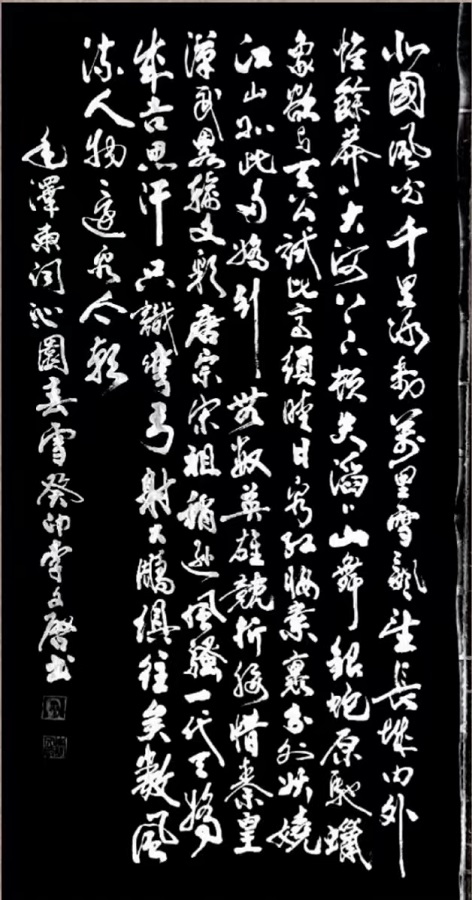 北國風光千里冰封萬里雪飄望長城內外
惟餘莽〻大河上下頓失滔〻山舞銀蛇原馳蠟
象欲與天公試比高須晴日看紅妝素裹分外妖嬈
江山如此多嬌引無數英雄競折腰惜秦皇
漢武略輸文彩唐宗宋祖稍遜風騷一代天嬌
成吉思汗只識彎弓射大鵰俱往矣數風
流人物還看今朝
毛澤東詞沁園春雪癸卯文啓书